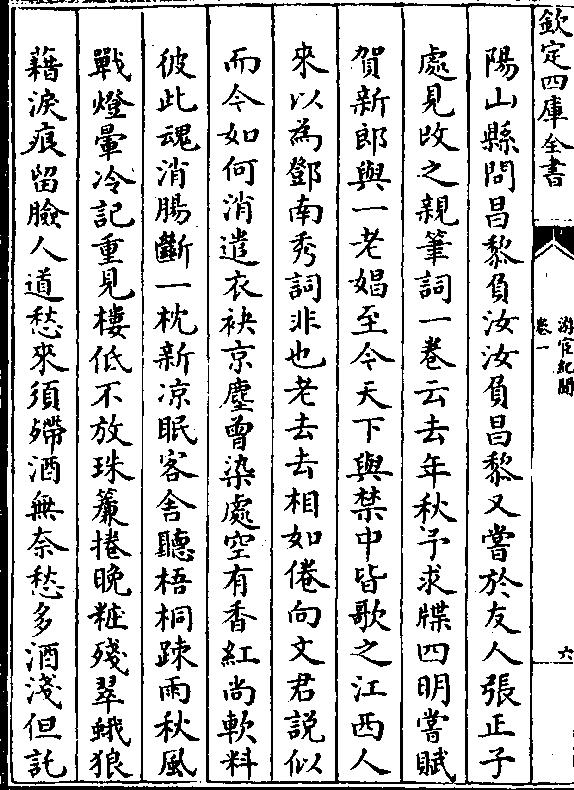 欽定四庫全書
游宦紀聞
卷一
六
陽山縣問昌黎負汝汝負昌黎又嘗於友人張正子
處見改之親筆詞一卷云去年秋予求牒四明嘗賦
賀新郎與一老娼至今天下與禁中皆歌之江西人
來以為鄧南秀詞非也老去去相如倦向文君説似
而今如何消遣衣袂京塵曾染處空有香紅尚軟料
彼此魂消腸斷一枕新凉眠客舍聽梧桐疎雨秋風
戰燈暈冷記重見樓低不放珠簾捲晚粧殘翠蛾狼
藉淚痕留臉人道愁來須殢酒無奈愁多酒淺但託